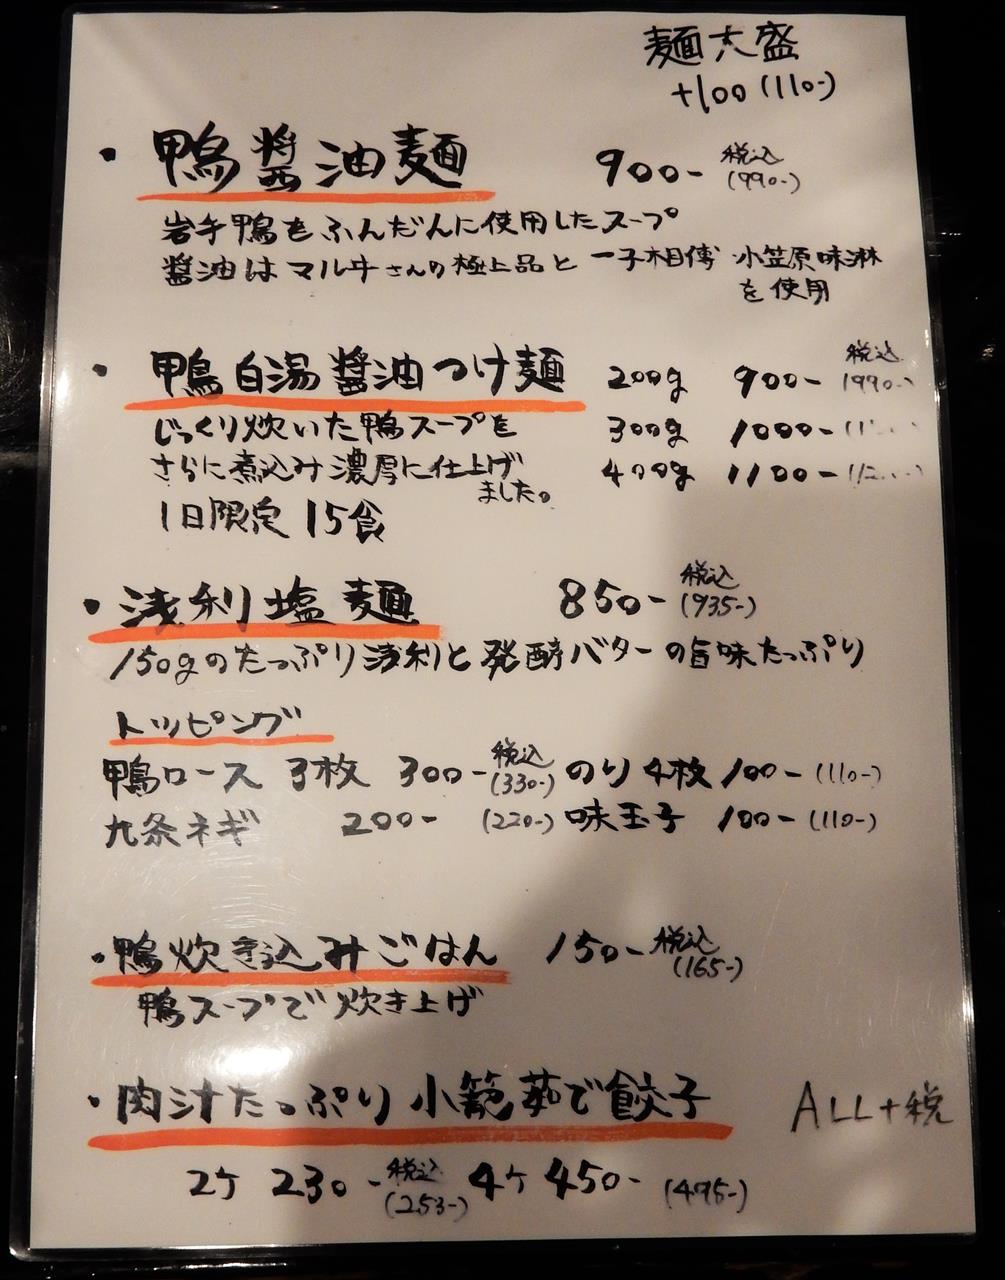 麺大盛
+100(110-)
・鴨醤油麺 900- 税込(990-)
岩手鴨をふんだんに使用したスープ
醤油はマルヰさんの極上品と一子相傳 小笠原味淋
を使用
・鴨白湯醤油つけ麺 200g 900- 税込(990-)
じっくり炊いた鴨スープを 300g 1000-
さらに煮込み濃厚に仕上げ 400g 1100-
ました。
1日限定 15食
・浅利塩麺 850- 税込(935-)
150gのたっぷり浅利と発酵バターの旨味たっぷり
トッピング
鴨ロース 3枚 300- 税込(330-) のり4枚 100-(110-)
九条ネギ 200- (220-) 味玉子 100-(110-)
・鴨炊き込みごはん 150- 税込(165-)
鴨スープで炊き上げ
・肉汁たっぷり小籠茹で餃子 ALL+税
2ケ 230- 税込(253-) 4ケ 450- (495-)